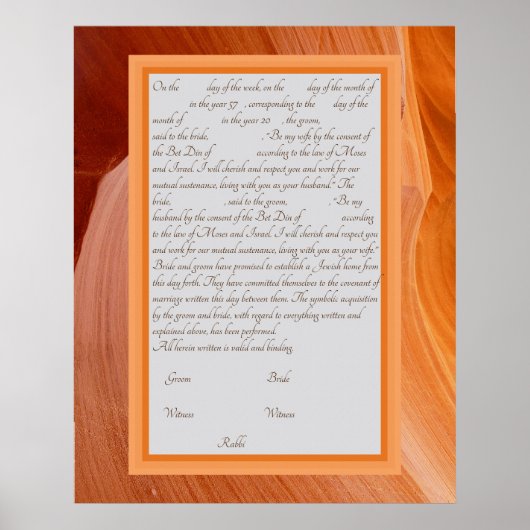 On the day of the week, on the day of the month of
in the year 57 , corresponding to the day of the
month of in the year 20 , the groom,
said to the bride, , "Be my wife by the consent of
the Bet Din of according to the law of Moses
and Israel. I will cherish and respect you and work for our
mutual sustenance, living with you as your husband." The
bride, , said to the groom, , "Be my
husband by the consent of the Bet Din of according
to the law of Moses and Israel. I will cherish and respect you
and work for our mutual sustenance, living with you as your wife."
Bride and groom have promised to establish a Jewish home from
this day forth. They have committed themselves to the covenant of
marriage written this day between them. The symbolic acquisition
by the groom and bride, with regard to everything written and
explained above, has been performed.
All herein written is valid and binding.
Groom Bride
Witness Witness
Rabbi